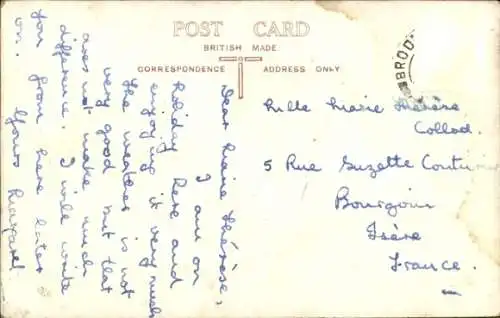 POST CARD
BRITISH MADE
CORRESPONDENCE
ADDRESS ONLY
BROD
Dear Marie Thérèse,
I am on
holiday here and
enjoying it very much
the weather is not
very good but that
does not make much
difference. I will write
you from here later
on. Yours Margaret
Mlle Marie Thérèse
Collod.
5 Rue Suzette
Bourgoin
Isère
France.